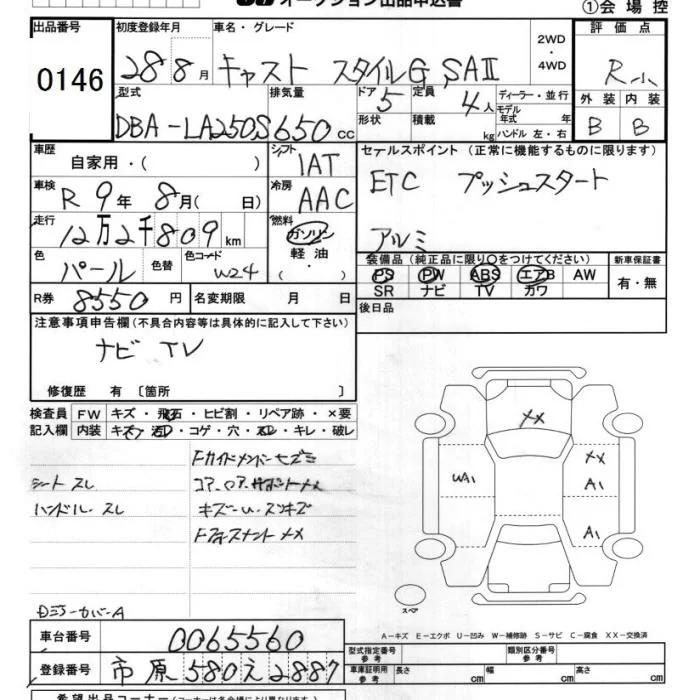 オークション出品申込書
①会場控
出品番号
0146
初度登録年月
28 8月
車名・グレード
キャスト スタイルG SAⅡ
2WD・4WD
評価点
R
外装 内装
B B
型式
DBA-LA250S
排気量
650cc
ドア 5
形状
定員 4人
積載 kg
ディーラー・並行
モデル年式 年
ハンドル 左・右
車歴
自家用・( )
シフト
IAT
セールスポイント (正常に機能するものに限ります)
ETC プッシュスタート
アルミ
車検
R 9年 8月( 日)
冷房
AAC
走行
12万2千809km
燃料
ガソリン
軽油
・( )
色
パール
色替
色コード
W24
装備品 (純正品に限り○をつけてください)
PS PW ABS エアB AW
SR ナビ TV カワ
新車保証書
有・無
R券 8550円
名変期限 月 日
後日品
注意事項申告欄(不具合内容等は具体的に記入して下さい)
ナビ TV
修復歴 有 〔箇所 〕
検査員記入欄
FW キズ・飛石・ヒビ割・リペア跡・×要
内装 キズ・汚レ・コゲ・穴・スレ・キレ・破レ
シート スレ
ハンドル スレ
XX
XX
WA1
A1
A1
スペア
A-キズ E-エクボ U-凹み W-補修跡 S-サビ C-腐食 XX-交換済
車台番号
0065560
登録番号
市原 580 え 2887
型式指定番号 参考
類別区分番号 参考
車庫証明用 参考
長さ cm
幅 cm
高さ cm
希望出品コーナー